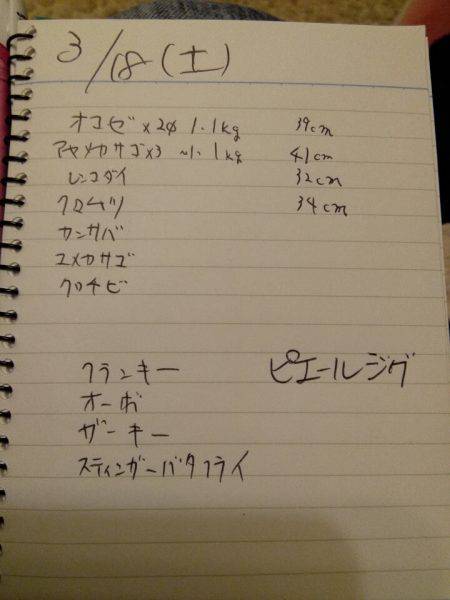 3/18(土)
オコゼ×2 1.1kg 39cm
アヤメカサゴ×3 ~1.1kg 41cm
レンコダイ 32cm
クロムツ 34cm
カンサバ
ユメカサゴ
クロチビ
フランキー ピエールジグ
オーボ
ガーキー
スティンガーバタフライ